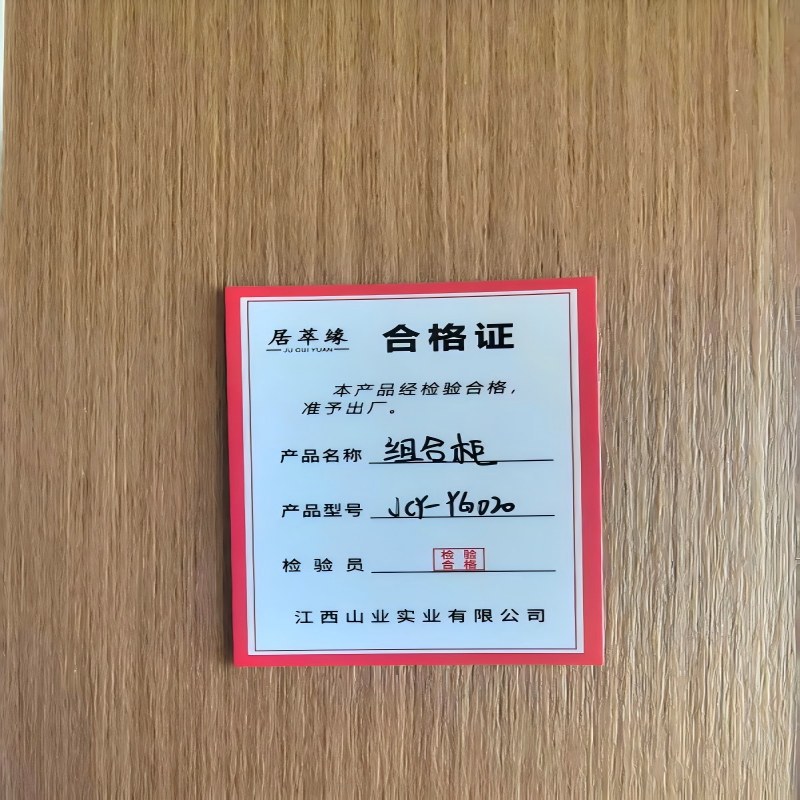 居萃缘 合格证
JU CUI YUAN
本产品经检验合格，
准予出厂。
产品名称 组合柜
产品型号 JCY-YG020
检验员 检验
合格
江西山业实业有限公司